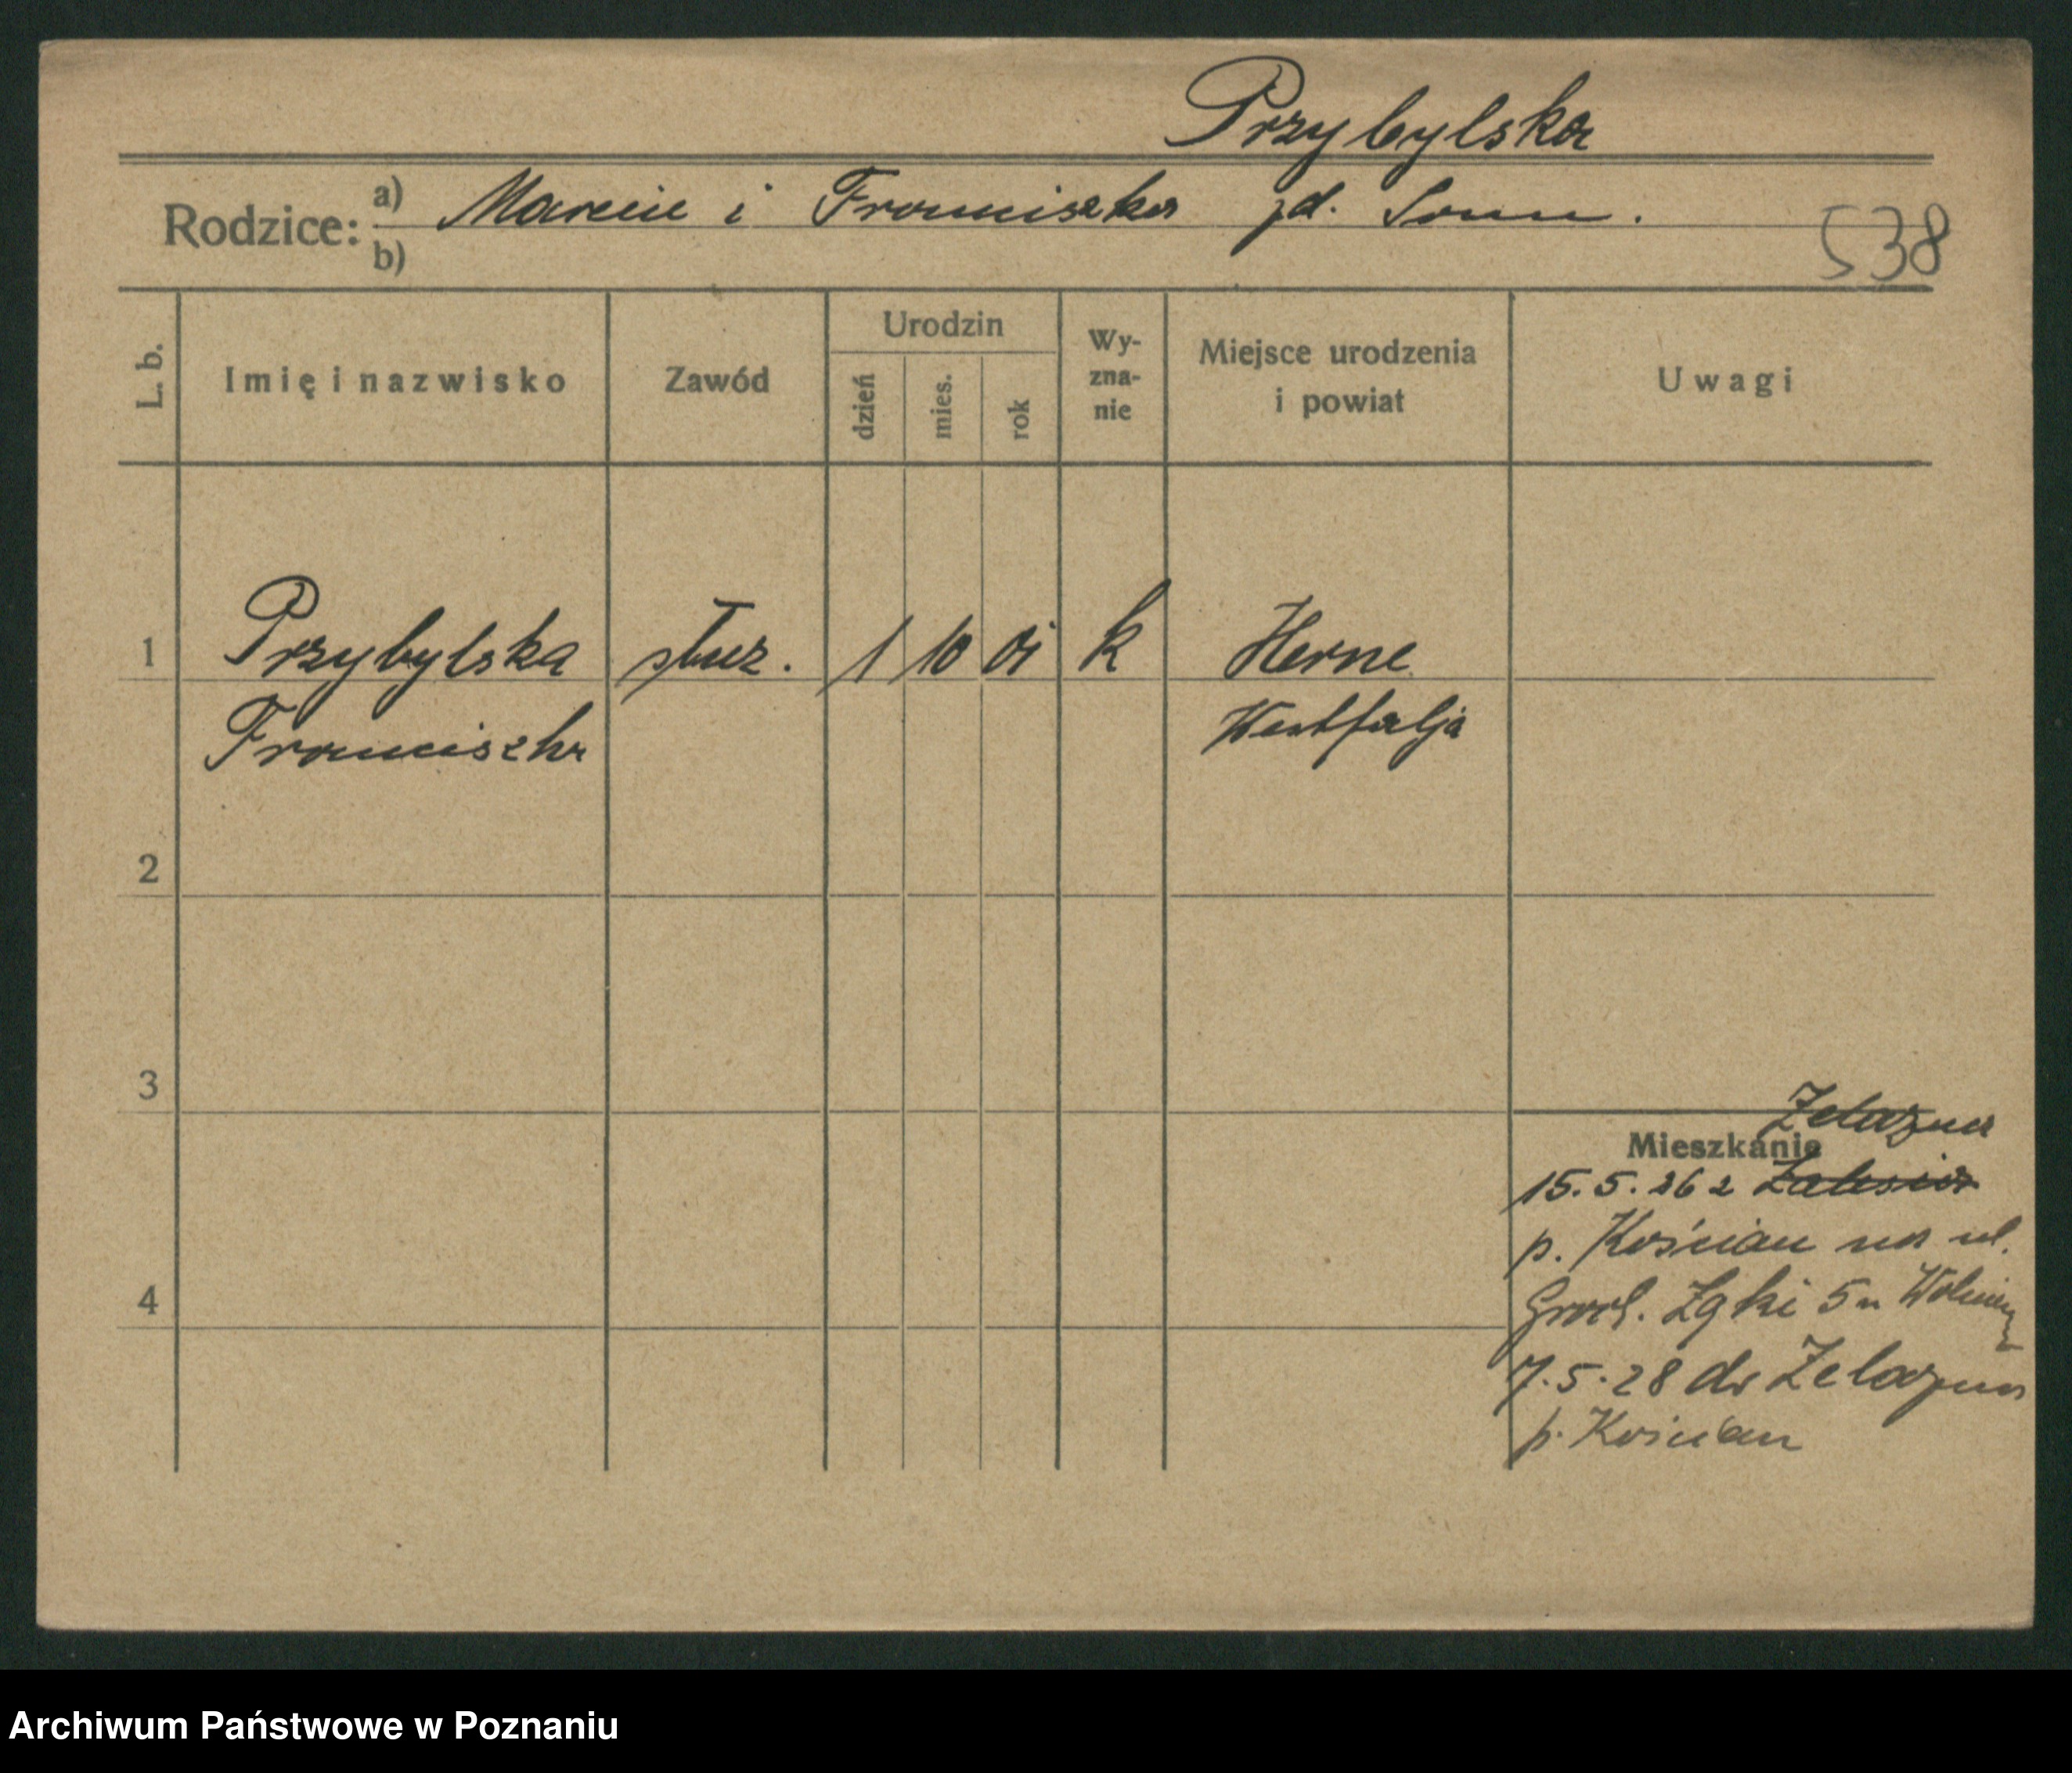 Przybylska
Rodzice: a) Marcin i Franciszka zd. Sonn.
b)
538
L. b. Imię i nazwisko Zawód Urodzin dzień mies. rok Wy-zna-nie Miejsce urodzenia i powiat Uwagi
1 Przybylska służ. 1 10 01 k Herne
Franciszka Westfalja
2
3
Żelazna
Mieszkanie
15.5.26 z Zalesia
p. Kościan na ul.
Grod. Łąki 5 u
4
7.5.28 do Żelazna
p. Kościan
Archiwum Państwowe w Poznaniu